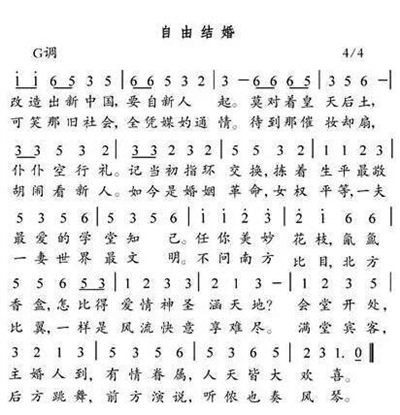 自由结婚
G调 4/4
1 1 6 5 3 5 | 6 6 5 3 2 | 3 - 6 6 6 5 | 3 5 3 5 |
改造出新中国,要自新人 起。莫对着皇 天后土,
可笑那旧社会,全凭媒妁通情。待到那催 妆却扇,
3 3 5 3 2 | 3 3 2 3 5 | 3 2 1 5 5 2 | 1 1 2 3 |
仆仆空行礼。记当初指环 交换,拣着 生平最敬
胡闹看新人。如今是婚姻 革命,女权 平等,一夫
5 3 5 6 | 5 3 5 | 1 1 2 3 | 1 2 1 6 |
最爱的学堂知 己。任你美妙 花枝,氤氲
一妻世界最文 明。不问南方 比目,北方
5 5 6 5 3 | 1 2 3 | 2 1 2 1 | 3 5 5 6 |
香盒,怎比得 爱情神圣 涵天地? 会堂开处,
比翼,一样是 风流快意 享难尽。 满堂宾客,
3 2 1 3 | 5 3 5 6 | 5 3 5 2 | 3 1. 0 ‖
主婚人到,有情眷属,人天皆大 欢喜。
后方跳舞,前方演说,听侬也奏 风琴。